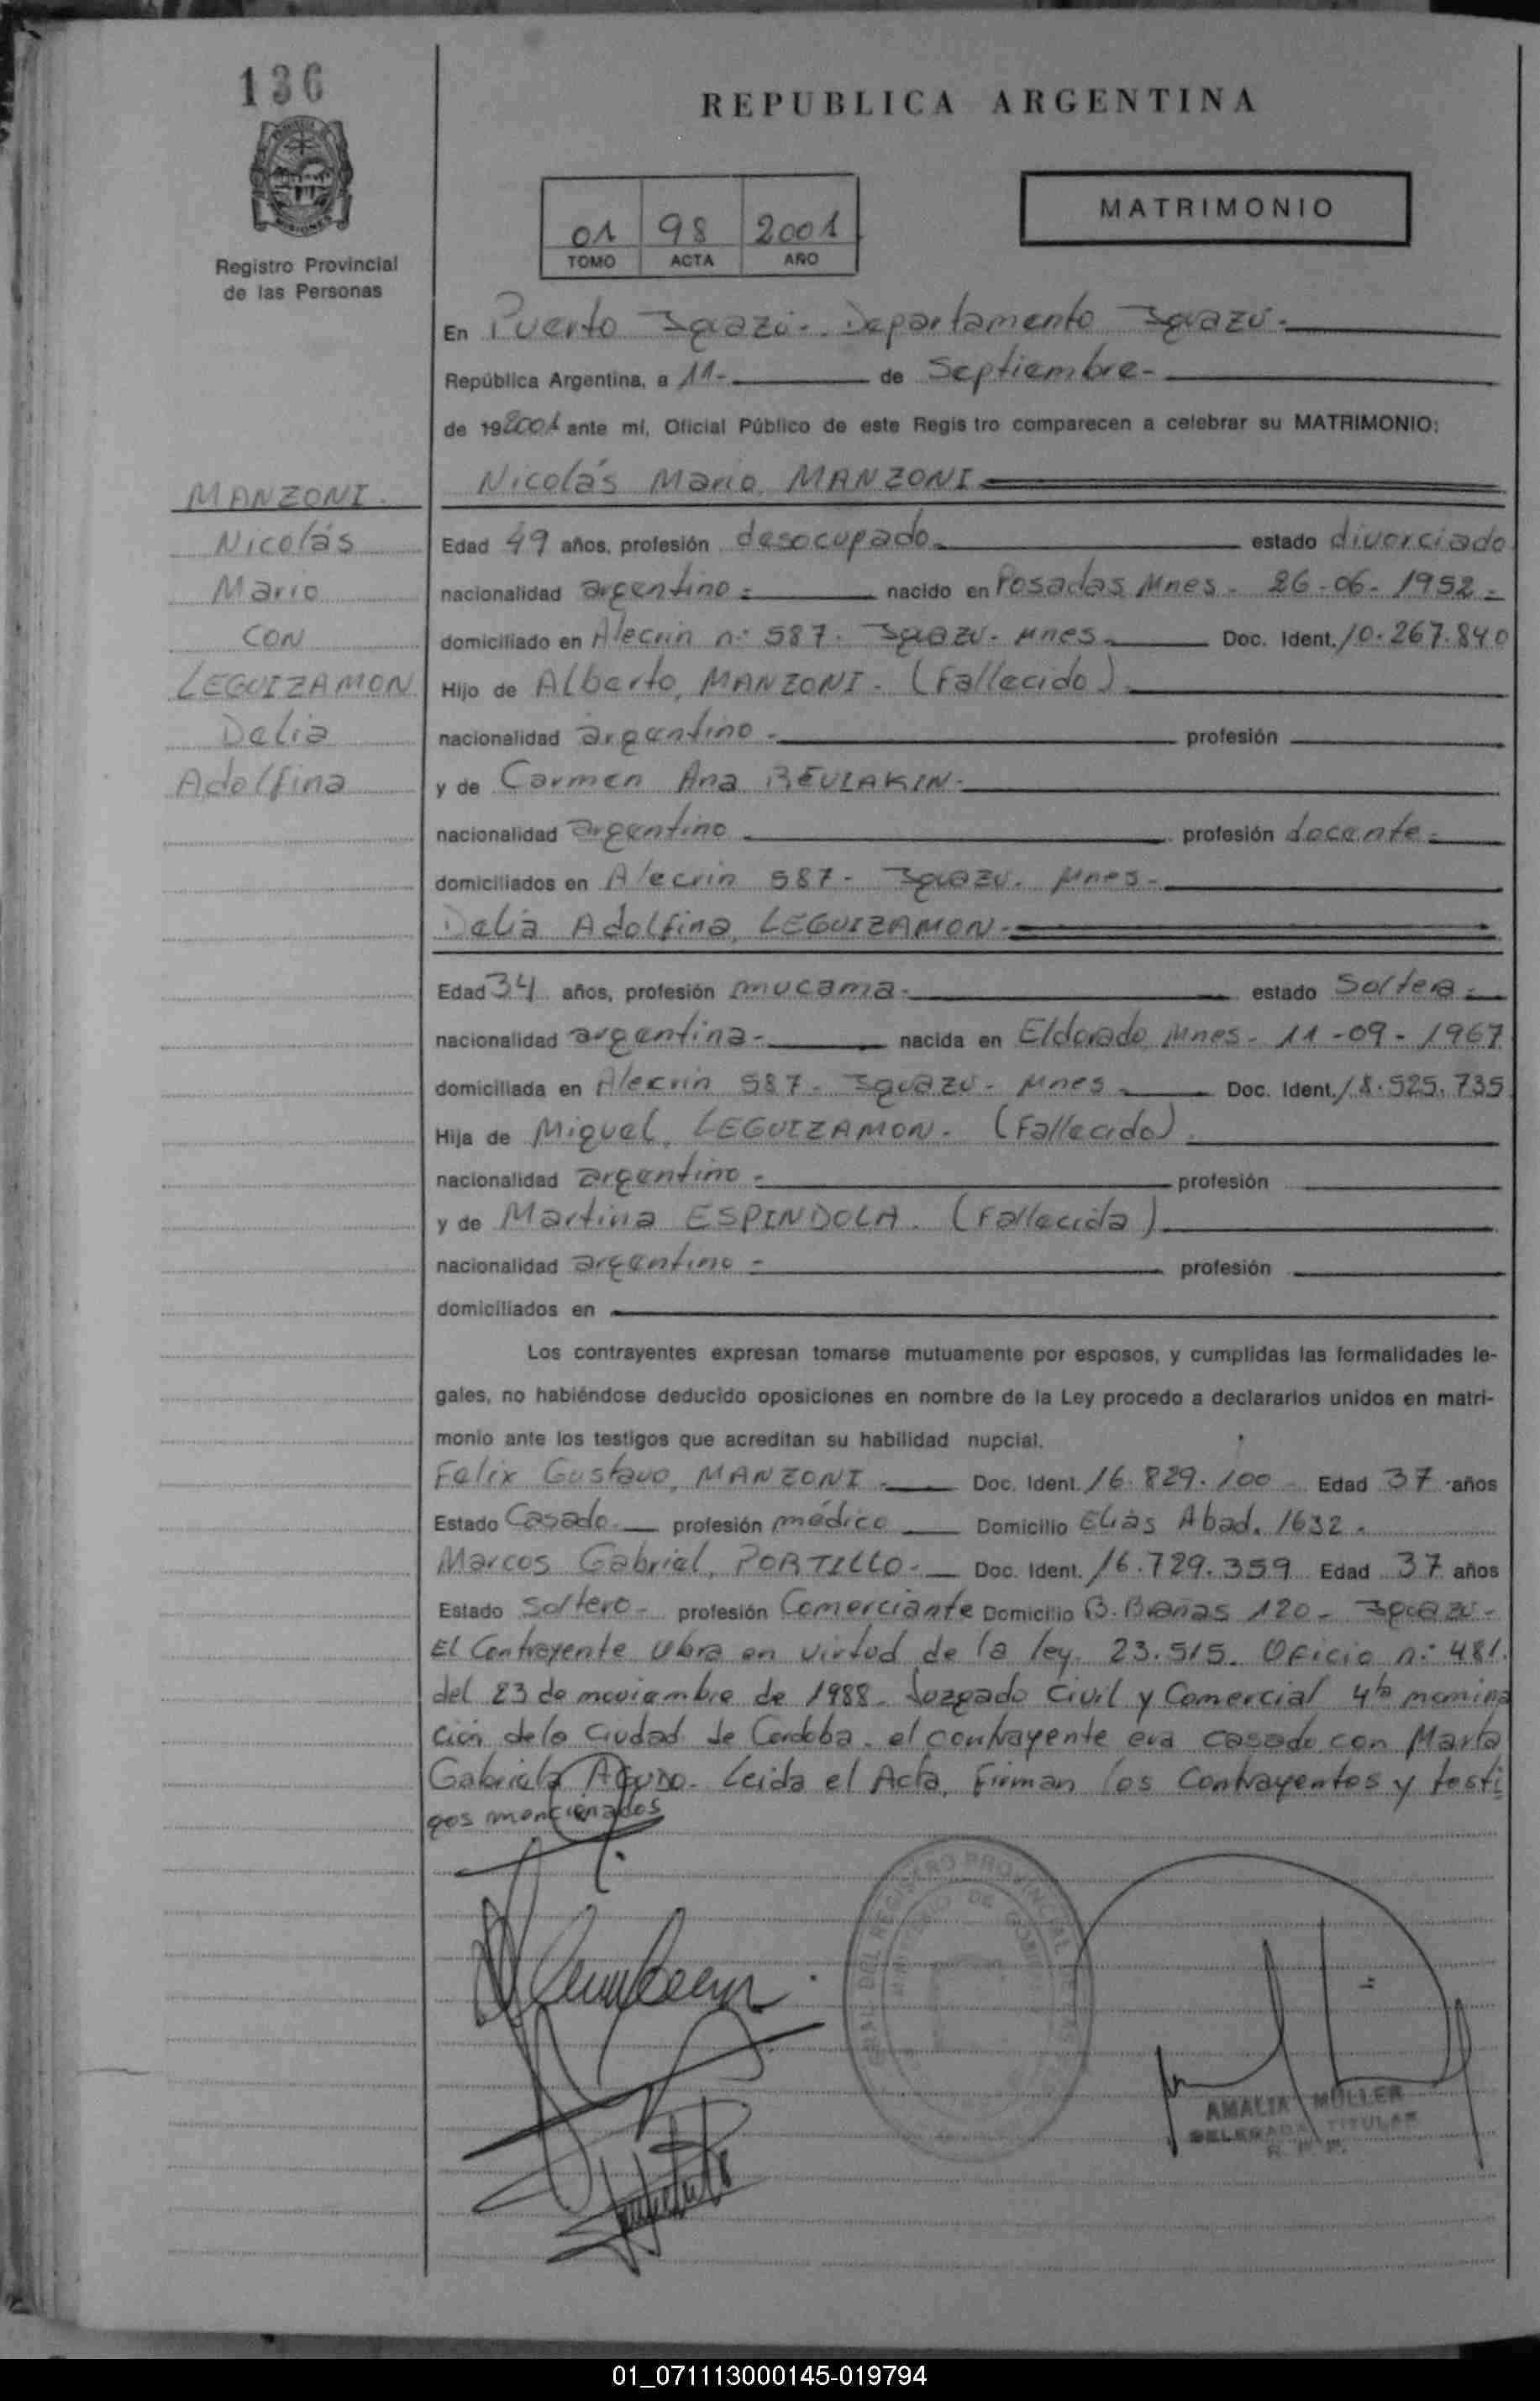 136
REPUBLICA ARGENTINA
Registro Provincial
de las Personas
01 98 2001
TOMO ACTA AÑO
MATRIMONIO
En Puerto Iguazú-. Departamento Iguazú-.
República Argentina, a 11- de Septiembre-
de 192001 ante mí, Oficial Público de este Regis tro comparecen a celebrar su MATRIMONIO:
Nicolás Mario, MANZONI
MANZONI.
Nicolás
Mario
CON
LEGUIZAMON
Delia
Adolfina
Edad 49 años, profesión desocupado- estado divorciado
nacionalidad argentino- nacido en Posadas Mnes- 26-06-1952-
domiciliado en Alecrin n: 587- Iguazú- Mnes- Doc. Ident. 10.267.840
Hijo de Alberto, MANZONI- (Fallecido)
nacionalidad argentino- profesión
y de Carmen Ana
nacionalidad argentino profesión docente-
domiciliados en Alecrin 587- Iguazú- Mnes-
Delia Adolfina, LEGUIZAMON-
Edad 34 años, profesión mucama- estado Soltera-
nacionalidad argentina- nacida en Eldorado, Mnes- 11-09-1967
domiciliada en Alecrin 587- Iguazú- Mnes- Doc. Ident. 18.525.735
Hija de Miguel, LEGUIZAMON- (Fallecido)
nacionalidad argentino- profesión
y de Martina ESPINDOLA. (Fallecida)
nacionalidad argentino- profesión
domiciliados en
Los contrayentes expresan tomarse mutuamente por esposos, y cumplidas las formalidades le-
gales, no habiéndose deducido oposiciones en nombre de la Ley procedo a declararlos unidos en matri-
monio ante los testigos que acreditan su habilidad nupcial.
Felix Gustavo, MANZONI- Doc. Ident. 16.829.100- Edad 37 años
Estado Casado- profesión médico Domicilio Elias Abad. 1632-
Marcos Gabriel, PORTILLO- Doc. Ident. 16.729.359 Edad 37 años
Estado Soltero- profesión Comerciante Domicilio B. Brañas 120- Iguazú-
El Contrayente obra en virtud de la ley. 23.515. Oficio n: 481.
del 23 de noviembre de 1988- Juzgado Civil y Comercial 4ta nomina
ción de la Ciudad de Cordoba. el contrayente era casado con Marta
Gabriela Leida el Acta, Firman los Contrayentes y testi
gos mencionados
REGISTRO PROVINCIAL DE LAS
MINISTERIO DE
AMALIA MULLER
DELEGADA TITULAR
R. P. P.
01_071113000145-019794